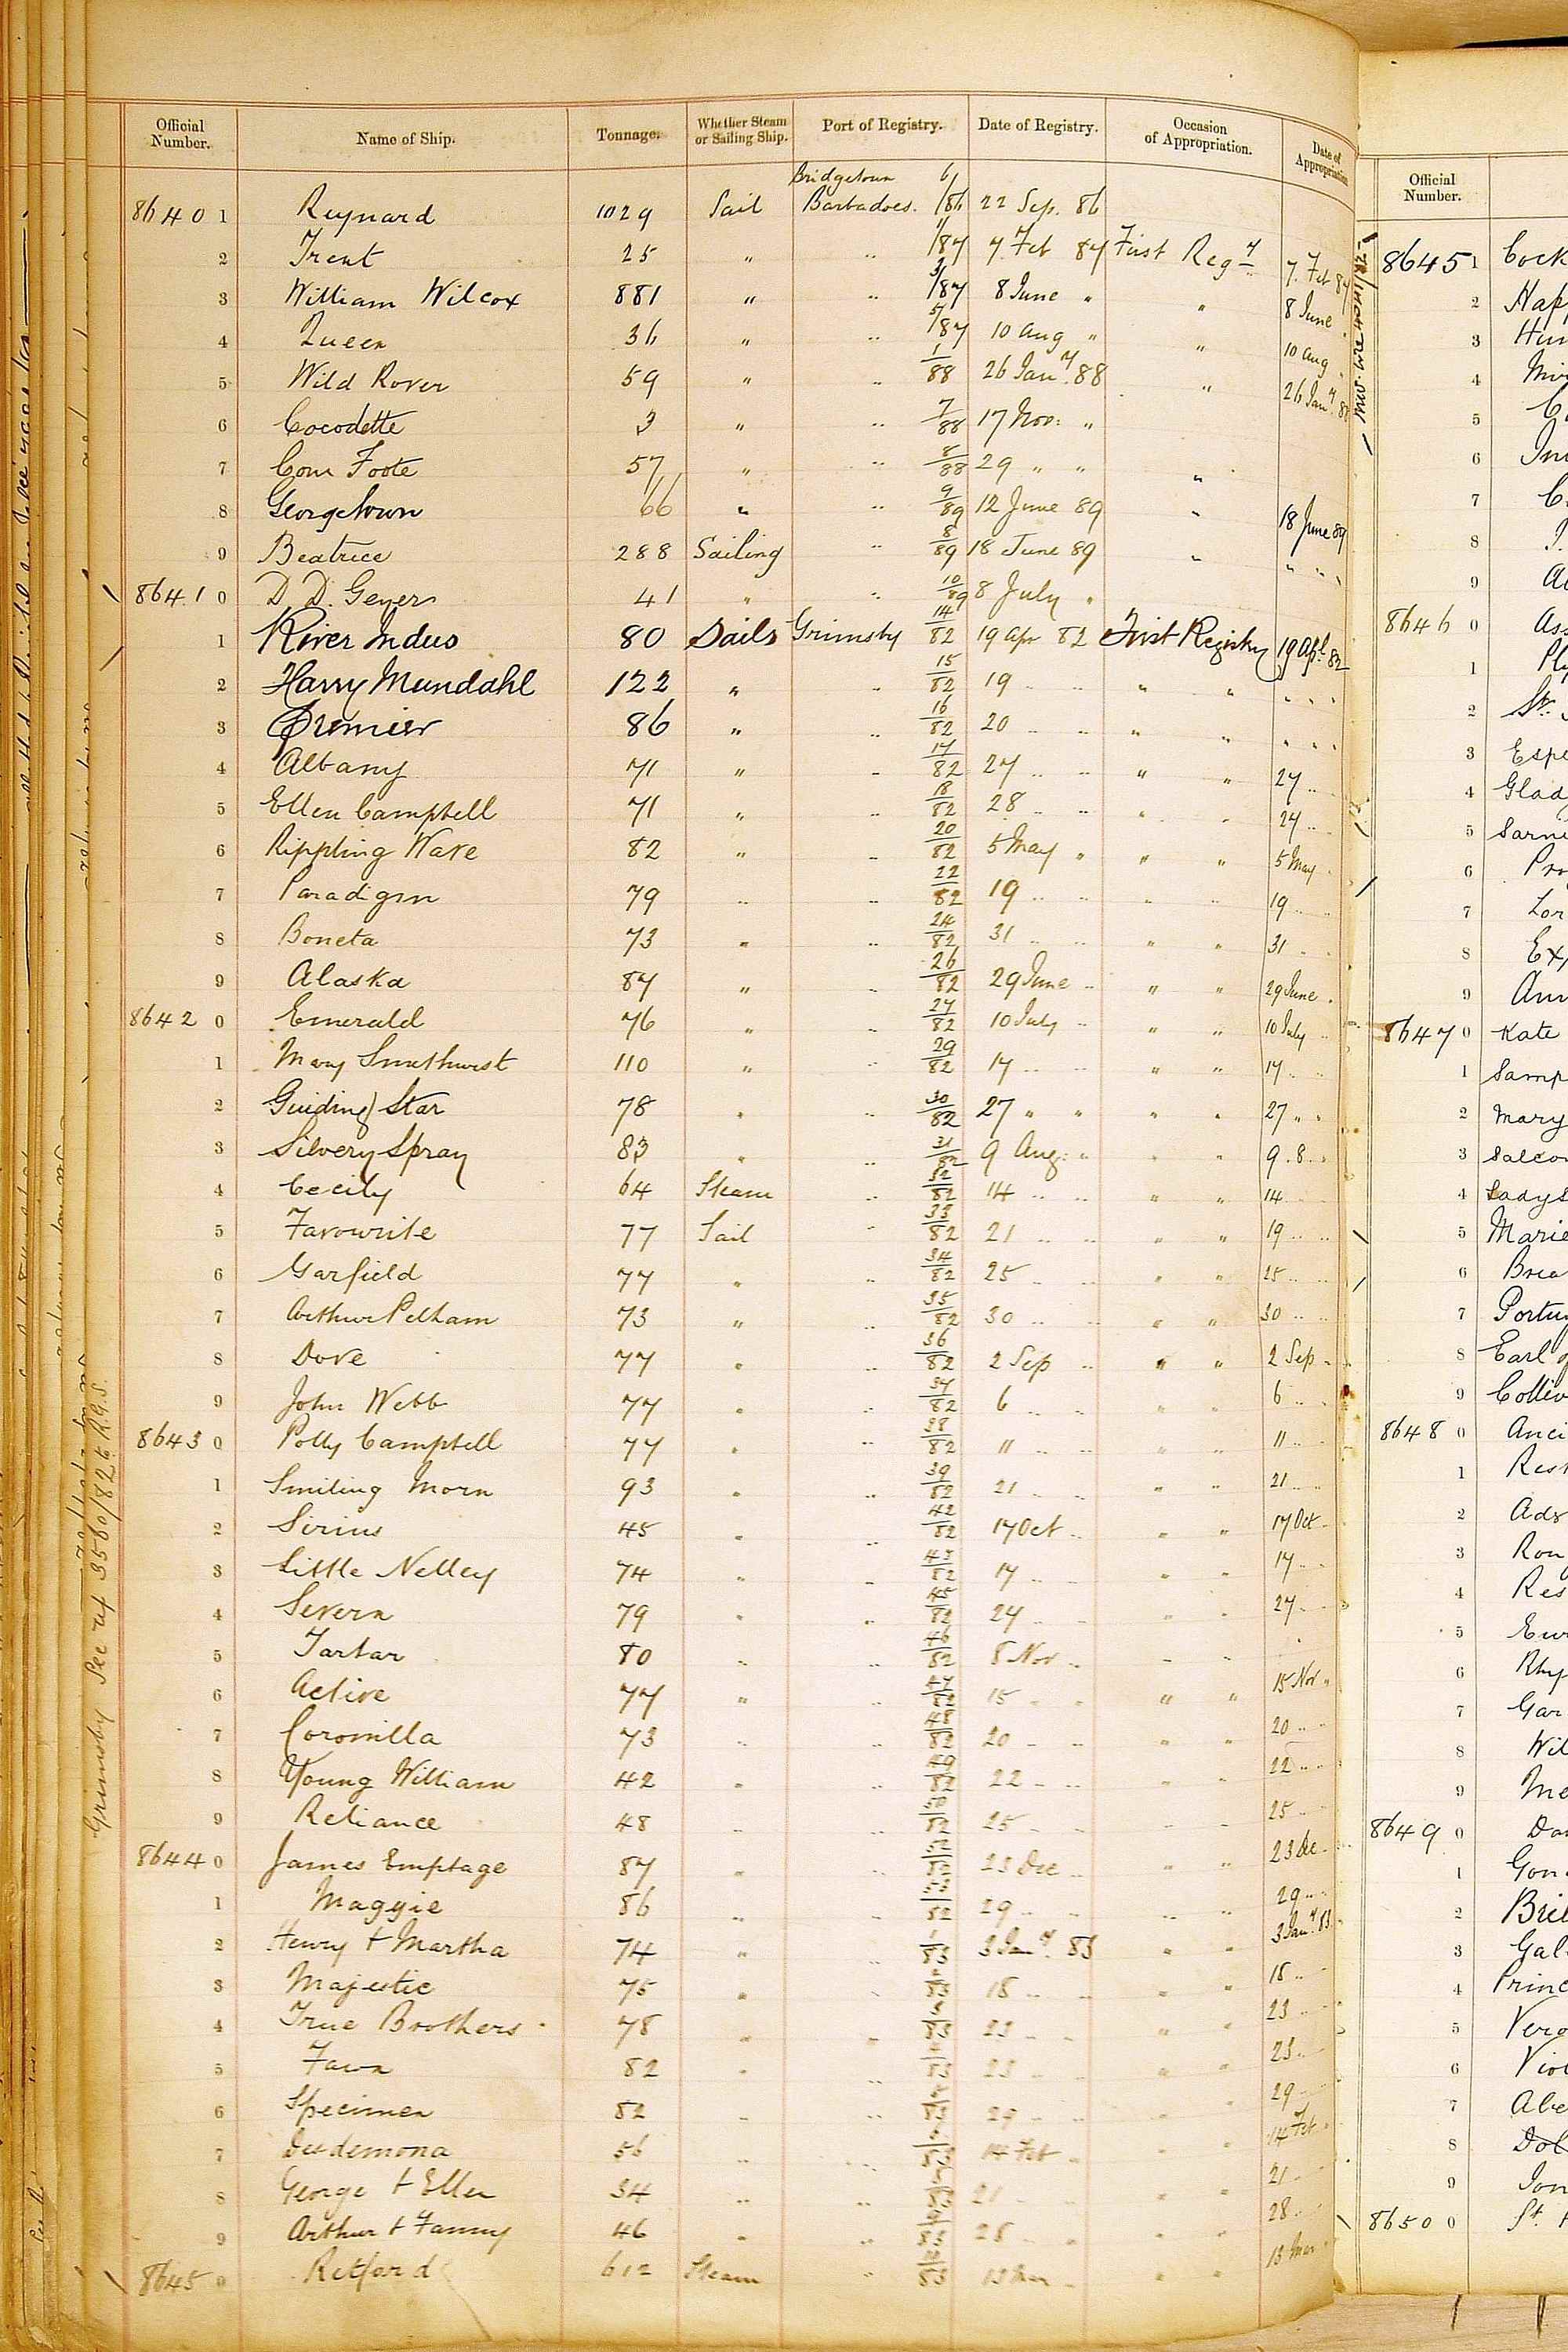 Official Number. Name of Ship. Tonnage. Whether Steam or Sailing Ship. Port of Registry. Date of Registry. Occasion of Appropriation. Date of Appropriation
Bridgetown 6/
86401 Reynard 1029 Sail Barbadoes. /86 22 Sep. 86
2 Trent 25 " " 1/87 7 Feb 87 First Regy 7 Feb 87
3 William Wilcox 881 " " 3/87 8 June " " 8 June
4 Queen 36 " " 5/87 10 Aug " " 10 Aug
5 Wild Rover 59 " " 1/88 26 Jany 88 " 26 Jany 88
6 Cocodette 3 " " 7/88 17 Nov: "
7 Com Foote 57 " " 8/88 29 " " "
8 Georgetown 66 " " 9/89 12 June 89 " 18 June 89
9 Beatrice 288 Sailing " 8/89 18 June 89 " " " "
86410 D. D. Geyer 41 " " 10/89 8 July "
1 River Indus 80 Sails Grimsby 14/82 19 Apr 82 First Registry 19 Apl 82
2 Harry Mundahl 122 " " 15/82 19 " " " " " " "
3 Premier 86 " " 16/82 20 " " " " " " "
4 Albany 71 " " 17/82 27 " " " " 27 "
5 Ellen Campbell 71 " " 18/82 28 " " " " 27 "
6 Rippling Wave 82 " " 20/82 5 May " " " 5 May
7 Paradigm 79 " " 22/82 19 " " " " 19 "
8 Boneta 73 " " 24/82 31 " " " " 31 "
9 Alaska 87 " " 26/82 29 June " " " 29 June "
86420 Emerald 76 " " 27/82 10 July " " " 10 July "
1 Mary Smethurst 110 " " 29/82 17 " " " " 17 " "
2 Guiding Star 78 " " 30/82 27 " " " " 27 " "
3 Silvery Spray 83 " " 31/82 9 Aug: " " " 9 . 8 "
4 Cecily 64 Steam " 32/82 14 " " " " 14
5 Favourite 77 Sail " 33/82 21 " " " " 19 " "
6 Garfield 77 " " 34/82 25 " " " " 25 " "
7 Arthur Pelham 73 " " 35/82 30 " " " " 30 " "
8 Dove 77 " " 36/82 2 Sep " " " 2 Sep "
9 John Webb 77 " " 37/82 6 " " " " 6 " "
86430 Polly Campbell 77 " " 38/82 11 " " " " 11 " "
1 Smiling Morn 93 " " 39/82 21 " " " " 21 " "
2 Sirius 45 " " 42/82 17 Oct " " " 17 Oct "
3 Little Nelley 74 " " 43/82 17 " " " " 17 " "
4 Severn 79 " " 45/82 24 " " " " 27 " "
5 Tartar 80 " " 46/82 8 Nov " " "
6 Active 77 " " 47/82 15 " " " " 15 Nov "
7 Coronilla 73 " " 48/82 20 " " " " 20 " "
8 Young William 42 " " 49/82 22 " " " " 22 " "
9 Reliance 48 " " 50/82 25 " " " 25 " "
86440 James Emptage 87 " " 52/82 23 Dec " " " 23 Dec "
1 Maggie 86 " " 53/82 29 " " " " 29 " "
2 Henry & Martha 74 " " 1/83 3 Jany. 83 " " 3 Jany. 83
3 Majestic 75 " " /83 18 " " " " 18 " "
4 True Brothers 78 " " /83 23 " " " " 23 " "
5 Fawn 82 " " /83 23 " " " 23 "
6 Specimen 82 " " /83 29 " " " " 29 "
7 Desdemona 56 " " /83 14 Feb " " " 14 Feb "
8 George & Ellen 34 " " /83 21 " " " 21 "
9 Arthur & Fanny 46 " " /83 28 " " " 28 "
86450 Retford 612 Steam " /83 13 Mar " " " 13 Mar "
Grimsby See rap 3580/82 to R.G.S.
Official Number.
86451 Cock
2 Happ
3 Hun
4
5
6
7
8
9
86460 Ass
1
2
3 Espe
4 Glad
5 Sarni
6 Pro
7 Lor
8 Ex
9 Ann
86470 Kate
1 Samp
2 Mary
3 Salco
4 Lady
5 Marie
6 Brea
7 Portu
8 Earl of
9 Colliv
86480 Anci
1 Res
2
3
4 Res
5
6 Rhy
7 Gar
8 Wil
9 Me
86490
1 Gon
2 Bril
3 Gal
4 Princ
5 Vero
6 Viol
7 Abe
8 Dol
9
86500 St.